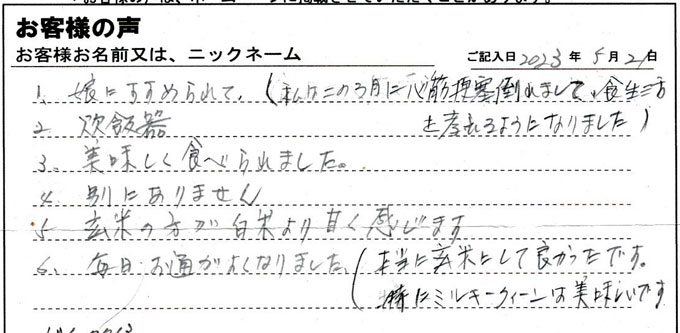 お客様の声
お客様お名前又は、ニックネーム
ご記入日2023年5月21日
1. 娘にすすめられて。(私はこの3月に心筋梗塞倒れまして、食生活
2. 炊飯器 を考えるようになりました)
3. 美味しく食べられました。
4. 別にありません
5. 玄米の方が白米より甘く感じます
6. 毎日、お通がよくなりました。(本当に玄米にして良かったです。
特にミルキークィーンは美味しいです